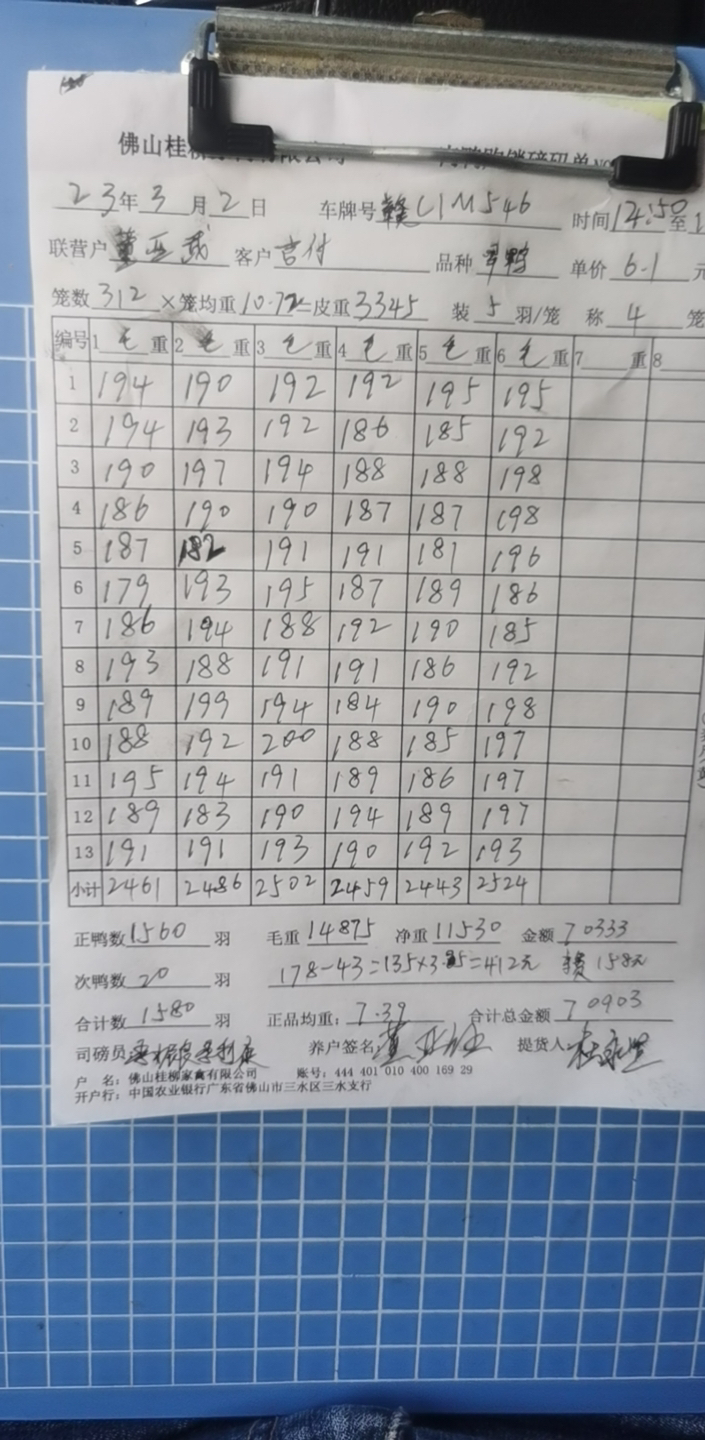 佛山桂柳
23年3月2日 车牌号赣C1M546 时间12:50至1
联营户 董亚武 客户 言付 品种 单价6.1元
笼数312×笼均重10.72=皮重3345 装5羽/笼 称4笼
编号 1毛重 2毛重 3毛重 4毛重 5毛重 6毛重 7重 8
1 194 190 192 192 195 195
2 194 193 192 186 185 192
3 190 197 194 188 188 198
4 186 190 190 187 187 198
5 187 182 191 191 181 196
6 179 193 195 187 189 186
7 186 194 188 192 190 185
8 193 188 191 191 186 192
9 189 199 194 184 190 198
10 188 192 200 188 185 197
11 195 194 191 189 186 197
12 189 183 190 194 189 197
13 191 191 193 190 192 193
小计 2461 2486 2502 2459 2443 2524
正鸭数1560羽 毛重14875 净重11530 金额70333
次鸭数20羽 178-43=135×3.05=412元 158元
合计数1580羽 正品均重：7.39 合计总金额70903
司磅员 养户签名： 提货人
户 名：佛山桂柳家禽有限公司 账号：444 401 010 400 169 29
开户行：中国农业银行广东省佛山市三水区三水支行